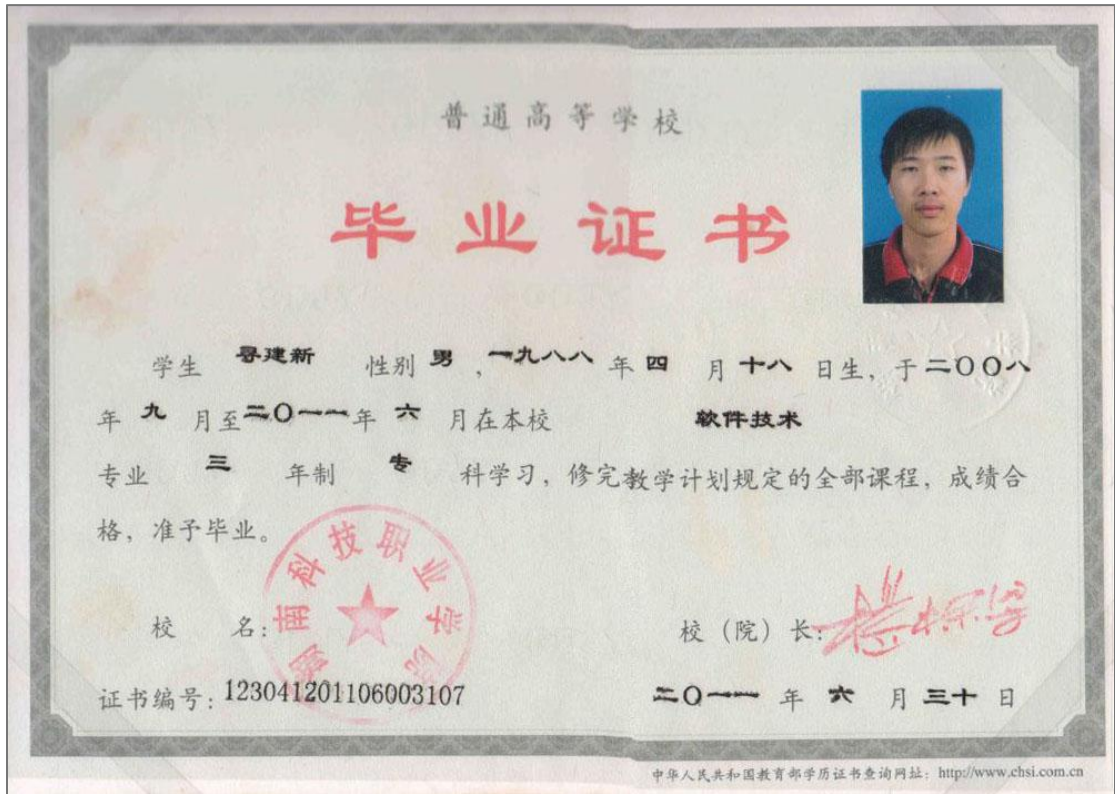 普通高等学校
毕业证书
学生 寻建新 性别 男 ,一九八八 年 四 月 十八 日生, 于 二〇〇八
年 九 月至 二〇一一 年 六 月在本校 软件技术
专业 三 年制 专 科学习, 修完教学计划规定的全部课程, 成绩合
格, 准予毕业。
湖南科技职业学院
校 名: 校 (院) 长:
证书编号: 123041201106003107 二〇一一 年 六 月 三十 日
中华人民共和国教育部学历证书查询网址: http://www.chsi.com.cn